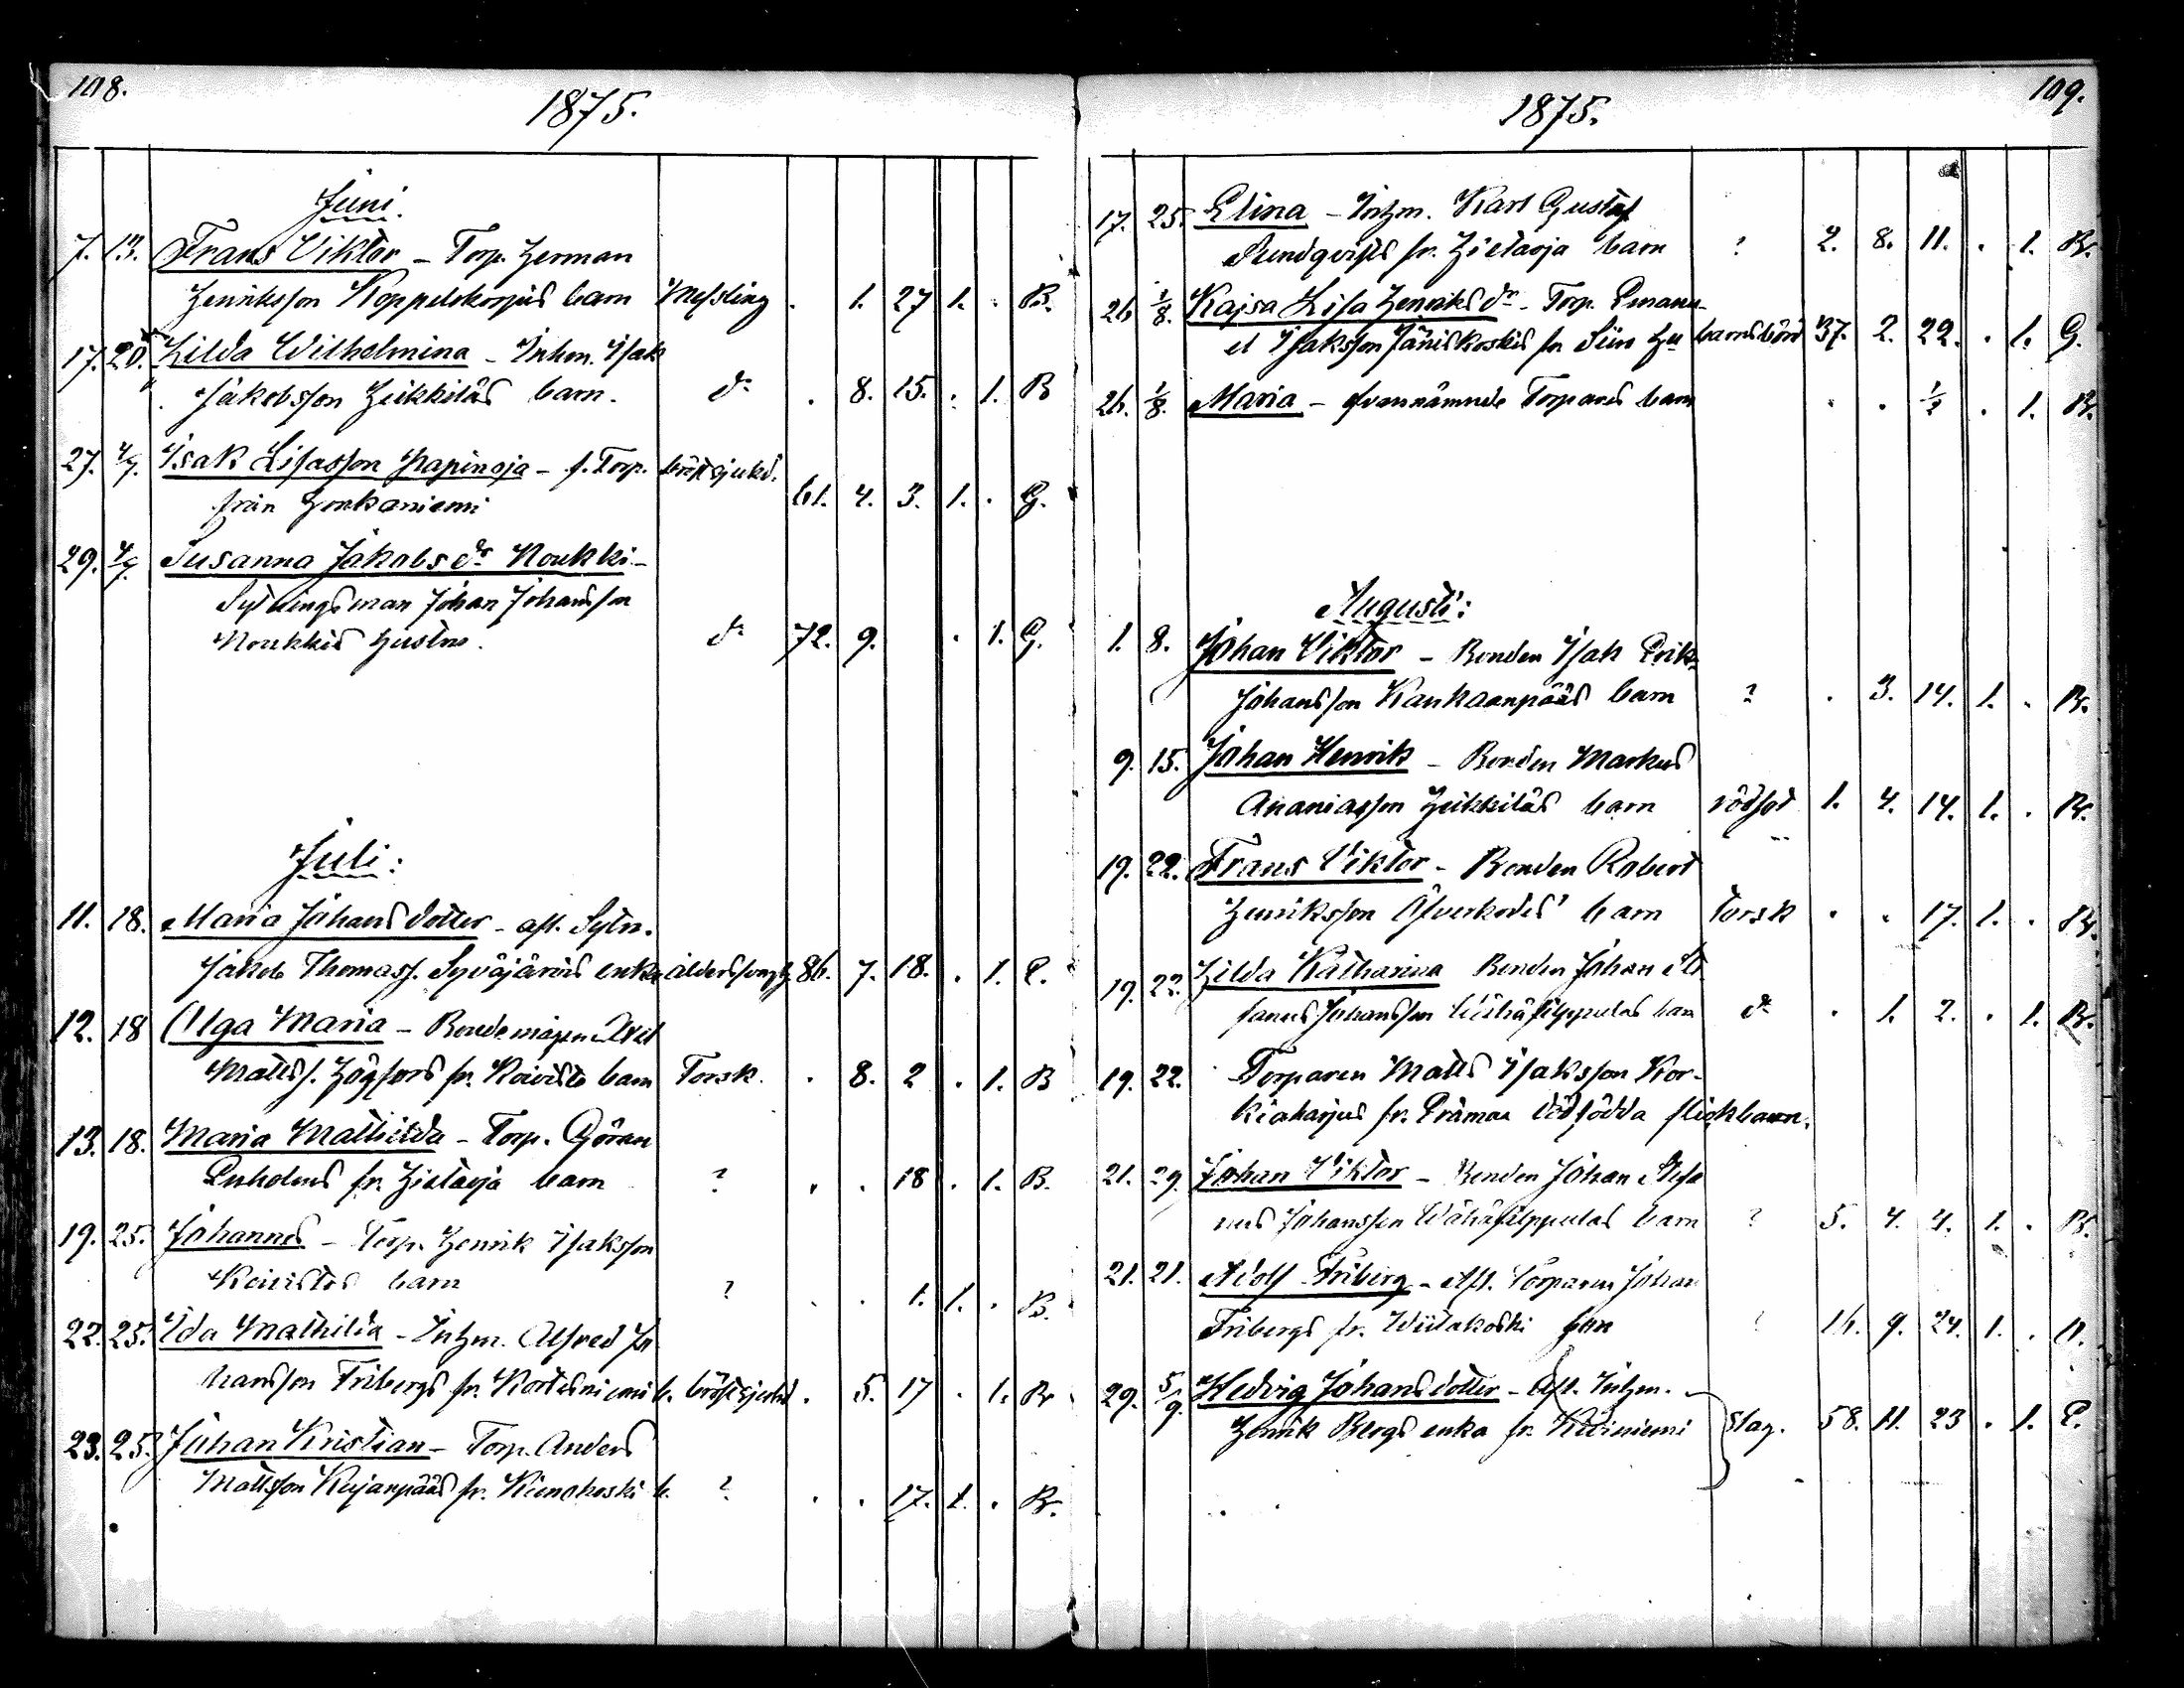 108.
1875.
Juni.
7. 13. Frans Viktor – Torp. Herman
Henriksson Koppelokorpis barn Messling . 1. 27 1. . B.
17. 20. Hilda Wilhelmina – Inhm. Isak
Jakobsson Heikkiläs barn. do . 8. 15. . 1. B
27. 4/7. Isak Lisasson Hapinoja – f. Torp. bröstsjukd.
från Honkaniemi 61. 4. 3. 1. . G.
29. 4/7. Susanna Jakobsdr Noukki –
Sytningsman Johan Johansson
Noukkis hustru. do 72. 9. . 1. G.
Juli:
11. 18. Maria Johansdotter – afl. Sytn.
Jakob Thomass. Syväjärvis enka ålderssvagh. 86. 7. 18. . 1. E.
12. 18 Olga Maria – Bondemågen Axel
Matts. Högfors fr. Koivisto barn Torsk. . 8. 2 . 1. B
13. 18. Maria Mathilda – Torp. Göran
Enholms fr. Hietaoja barn ? . . 18 . 1. B.
19. 25. Johannes – Torp. Henrik Isaksson
Koivistos barn ? . . 1. 1. . B.
22. 25. Ida Mathilda – Inhm. Alfred Jo
hansson Fribergs fr. Kortesniemi b. bröstsjukd . 5. 17 . 1. Br
23. 25. Johan Kristian – Torp. Anders
Mattsson Kujanpääs fr. Kiimakoski b. ? . . 17. 1. . Br.
109.
1875.
17. 25. Elina – Inhm. Karl Gustaf
Sundqvists fr. Hietaoja barn ? 2. 8. 11. . 1. Br.
26 1/8. Kajsa Lisa Henriksdr – Torp. Emanu-
el Isaksson Jäniskoskis fr. Siin hu barnsbörd 37. 2. 22. . 1. G.
26. 1/8. Maria – ofvannämnde Torpares barn . . 1/2 . 1. Br.
Augusti:
1. 8. Johan Viktor – Bonden Isak Erik
Johansson Kankaanpääs barn ? . 3. 14. 1. . Br.
9. 15. Johan Henrik – Bonden Markus
Ananiasson Heikkiläs barn rödsot 1. 4. 14. 1. . Br.
19. 22. Frans Viktor – Bonden Robert
Henriksson Öfverkodes barn Torsk . . 17. 1. . Br.
19. 22. Hilda Katharina Bonden Johan Ste
fanus Johansson Wähäfilppulas barn do . 1. 2. . 1. Br.
19. 22. Torparen Matts Isaksson Kor-
kiaharjus fr. Erämaa dödfödda flickbarn.
21. 29. Johan Viktor – Bonden Johan Stefa
nus Johansson Wähäfilppulas barn ? 5. 4. 4. 1. . Br.
21. 21. Adolf Friberg – Afl. Torparen Johan
Fribergs fr. Wiitakoski son ? 16. 9. 24. 1. .
29. 5/9. Hedvig Johansdotter – Afl. Inhm.
Henrik Bergs enka fr. Kiviniemi Slag. 58. 11. 23 . 1. E.